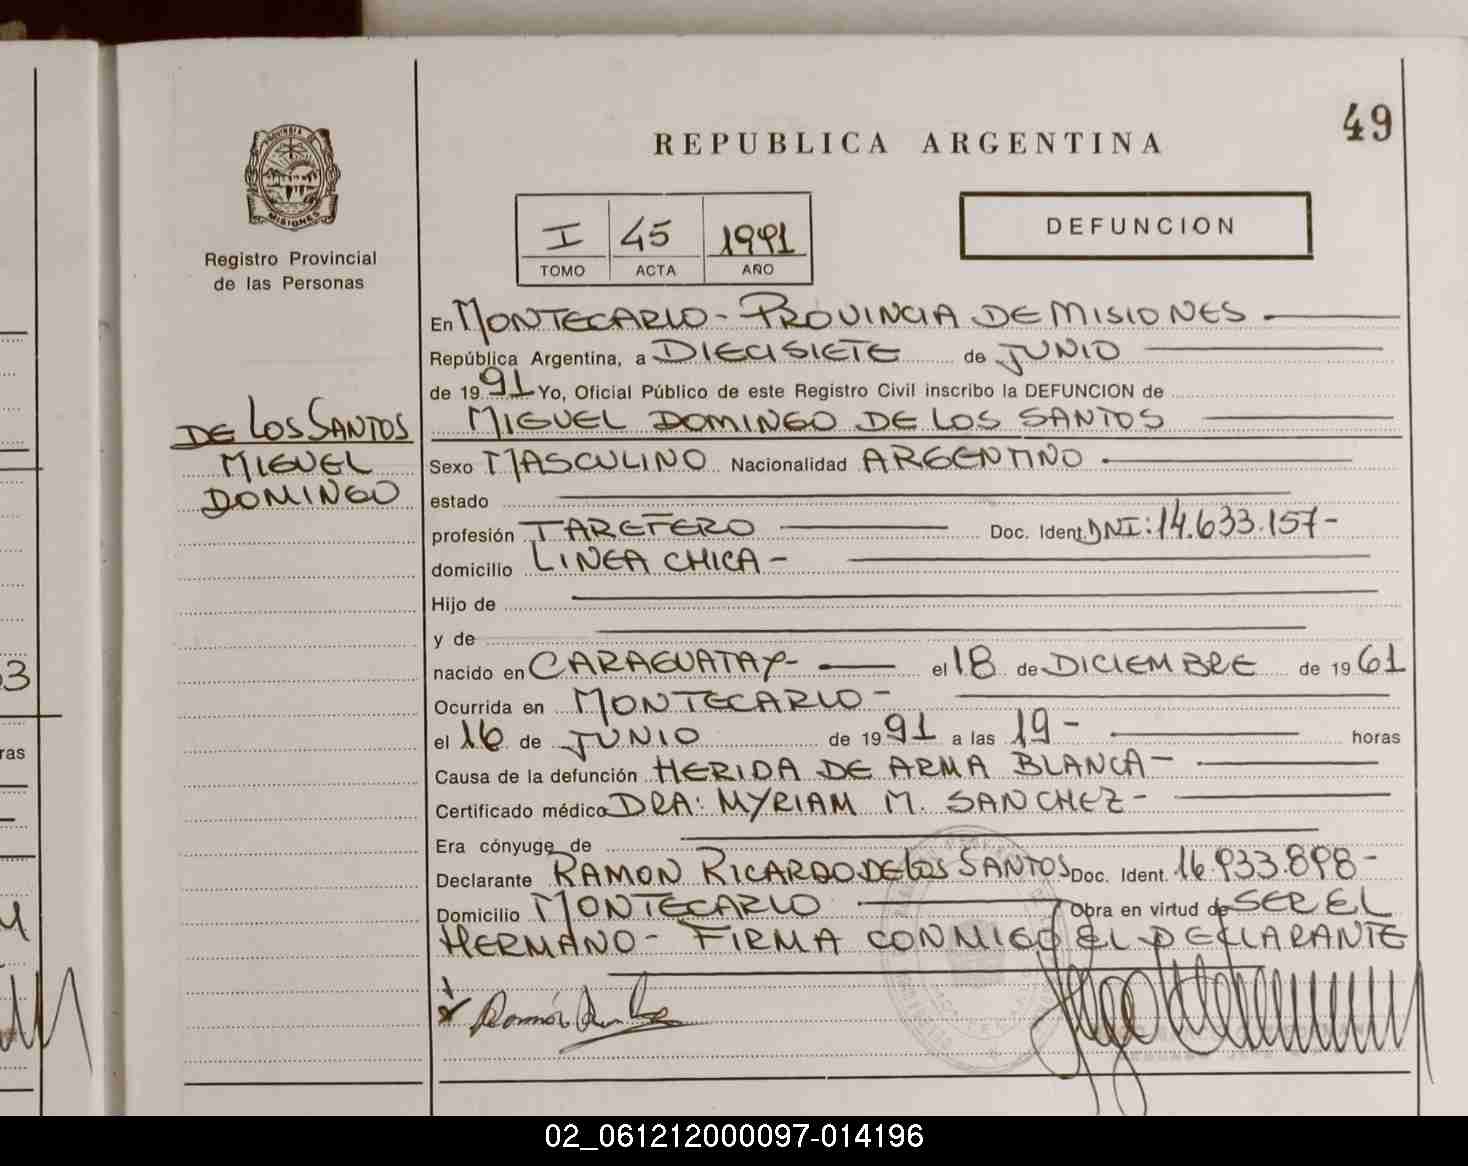 49
REPUBLICA ARGENTINA
PROVINCIA DE
MISIONES
Registro Provincial
de las Personas
I 45 1991
TOMO ACTA AÑO
DEFUNCION
En MONTECARLO - PROVINCIA DE MISIONES
República Argentina, a DIECISIETE de JUNIO
de 19 91 Yo, Oficial Público de este Registro Civil inscribo la DEFUNCION de
MIGUEL DOMINGO DE LOS SANTOS
DE LOS SANTOS
MIGUEL
DOMINGO
Sexo MASCULINO Nacionalidad ARGENTINO
estado
profesión TAREFERO Doc. Ident. DNI: 14.633.157-
domicilio LINEA CHICA -
Hijo de
y de
nacido en CARAGUATAY- el 18 de DICIEMBRE de 19 61
Ocurrida en MONTECARLO -
el 16 de JUNIO de 19 91 a las 19 - horas
Causa de la defunción HERIDA DE ARMA BLANCA -
Certificado médico DRA: MYRIAM M. SANCHEZ -
Era cónyuge de
Declarante RAMON RICARDO DE LOS SANTOS Doc. Ident. 16.933.898 -
Domicilio MONTECARLO Obra en virtud de SER EL
HERMANO - FIRMA CONMIGO EL DECLARANTE
Ramón
53
ras
02_061212000097-014196